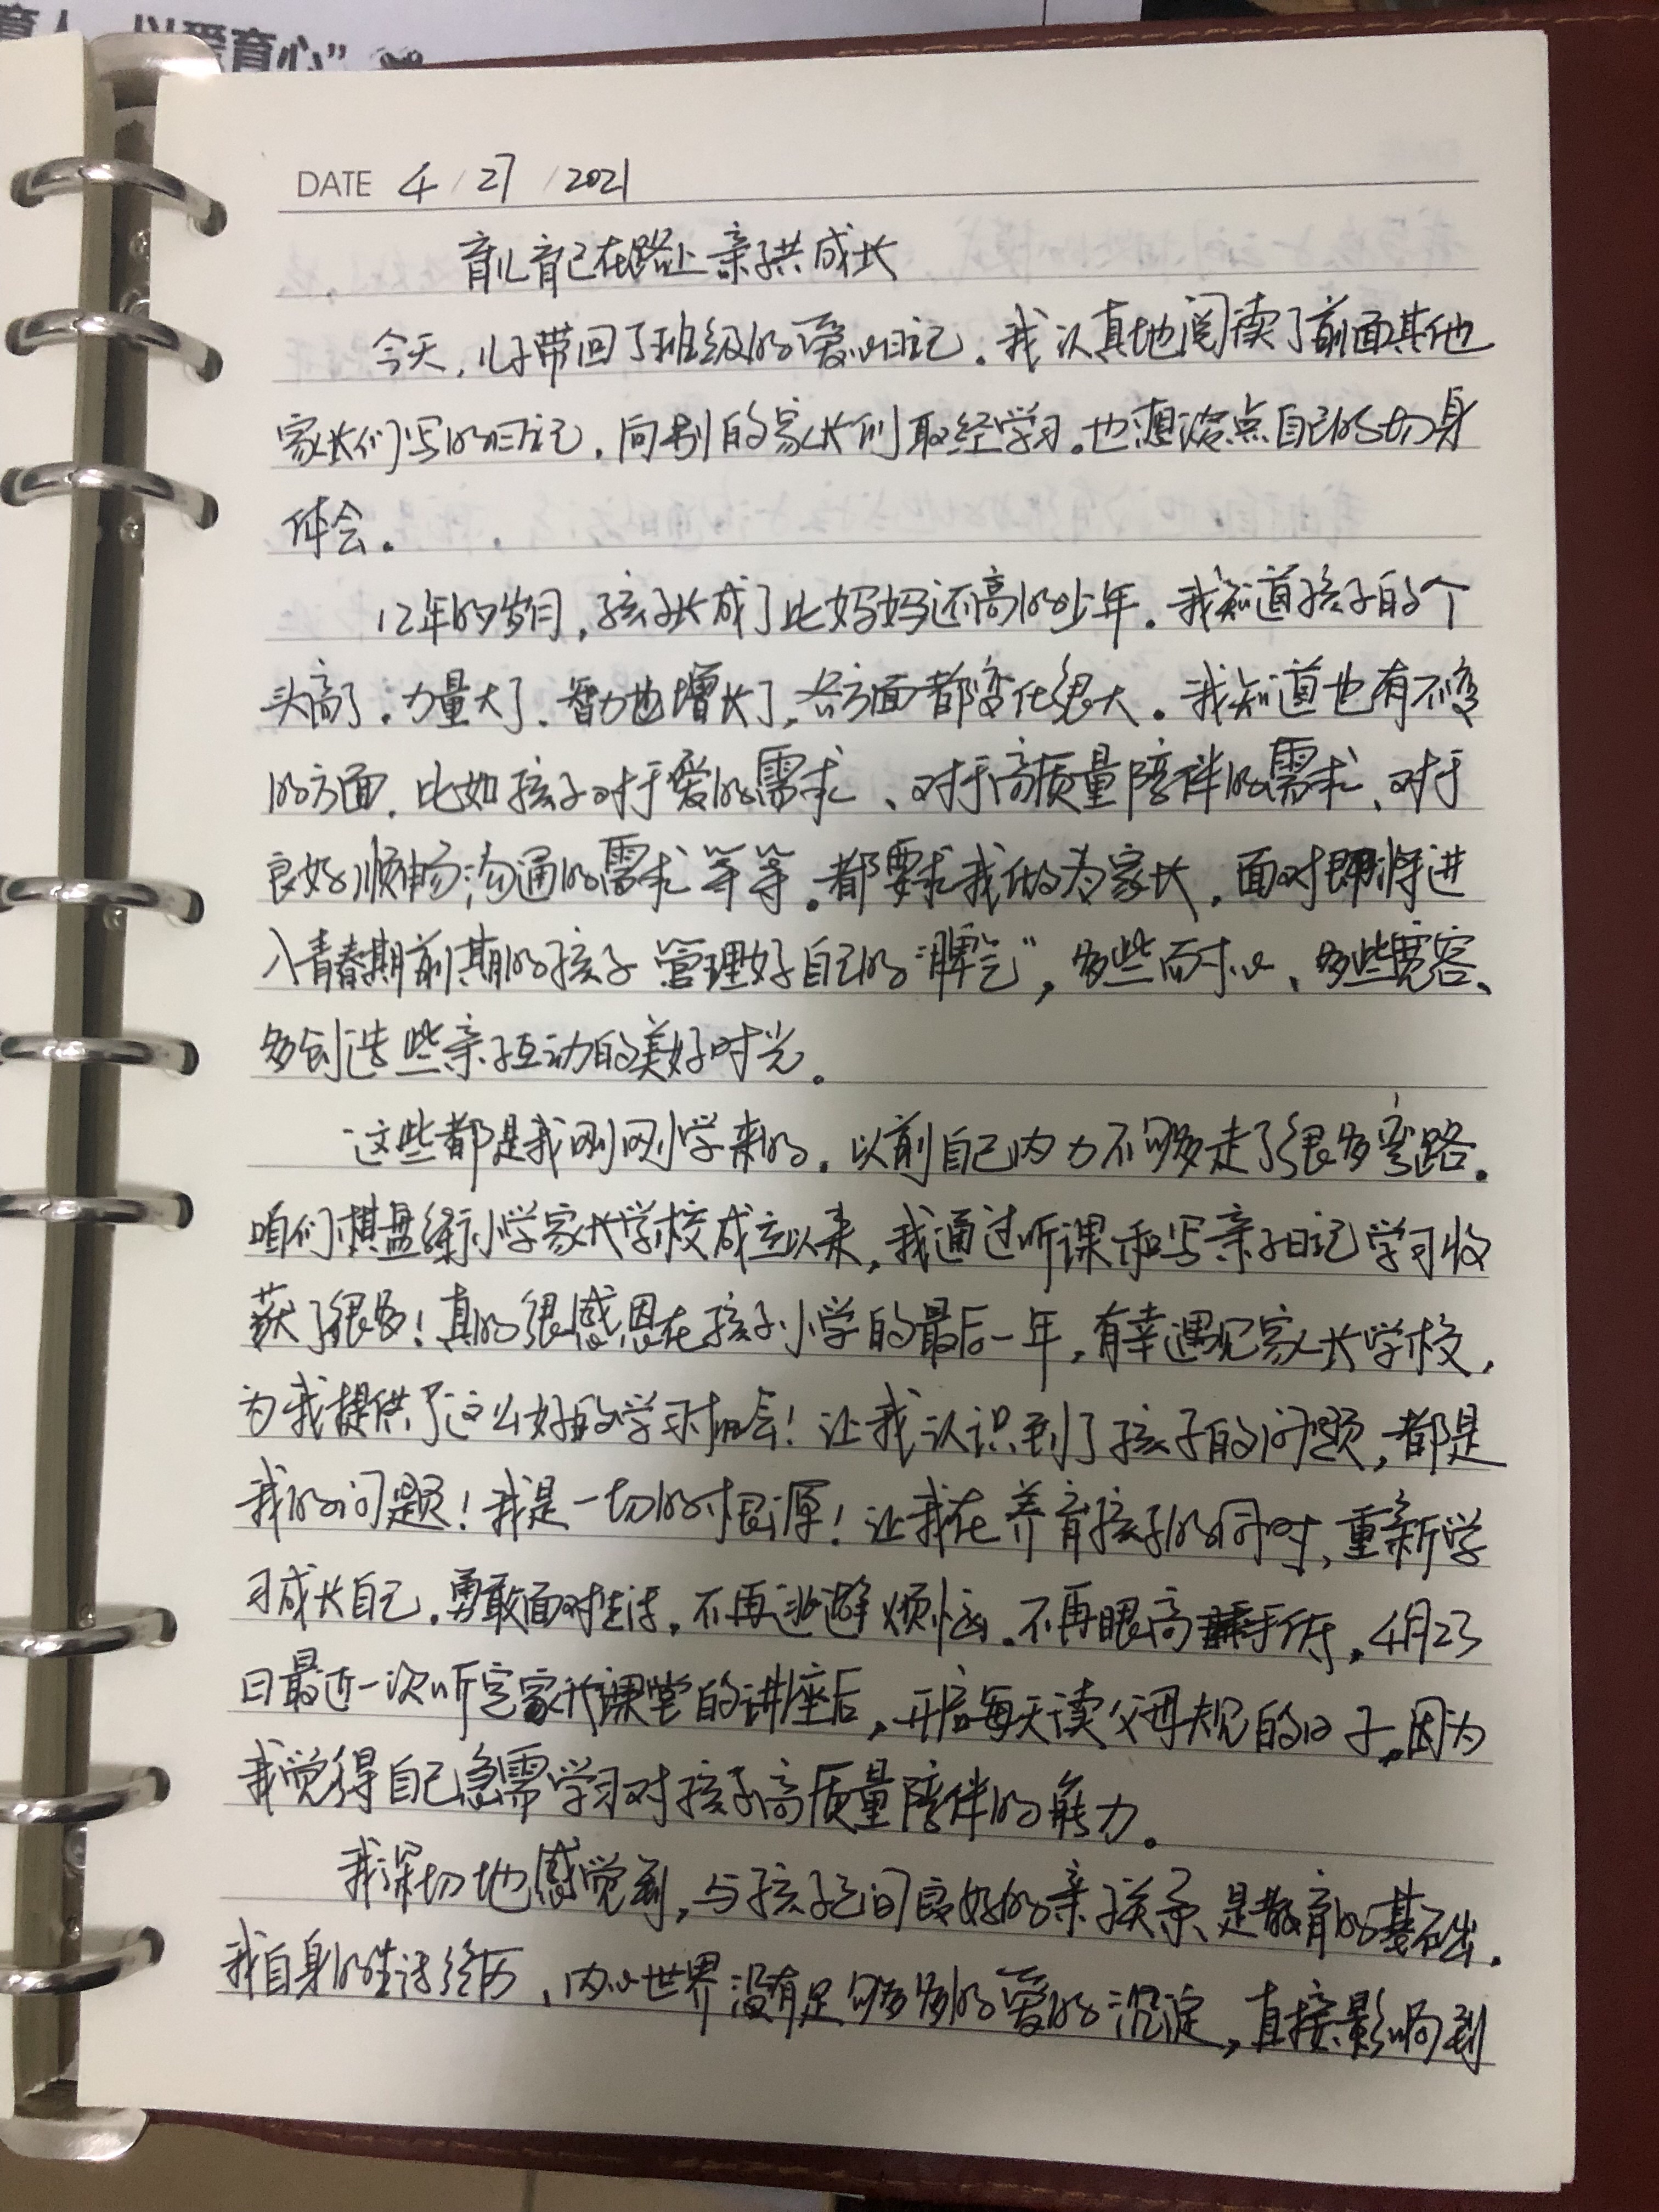 育人 以爱育心”
DATE 4/27/2021
育儿育己在路上 亲子共成长
今天，儿子带回了班级的爱心日记。我认真地阅读了前面其他
家长们写的日记，向别的家长们取经学习。也想谈点自己的切身
体会。
12年的岁月，孩子长成了比妈妈还高的少年。我知道孩子的个
头高了。力量大了、智力也增长了，各方面都变化很大。我知道也有不变
的方面，比如孩子对于爱的需求、对于高质量陪伴的需求、对于
良好顺畅沟通的需求等等。都要求我做为家长，面对即将进
入青春期前期的孩子管理好自己的“脾气”，多些耐心、多些宽容、
多创造些亲子互动的美好时光。
这些都是我刚刚学来的，以前自己内力不够多走了很多弯路。
咱们棋盘街小学家长学校成立以来，我通过听课和写亲子日记学习收
获了很多！真的很感恩在孩子小学的最后一年，有幸遇见家长学校，
为我提供了这么好的学习机会！让我认识到了孩子的问题，都是
我的问题！我是一切的根源！让我在养育孩子的同时，重新学
习成长自己，勇敢面对生活，不再逃避烦恼。不再眼高手低，4月23
日最近一次听完家长课堂的讲座后，开启每天读父母规的日子。因为
我觉得自己急需学习对孩子高质量陪伴的能力。
我深切地感觉到，与孩子之间良好的亲子关系是教育的基础。
我自身的生活经历，内心世界没有足够多的爱的沉淀，直接影响到